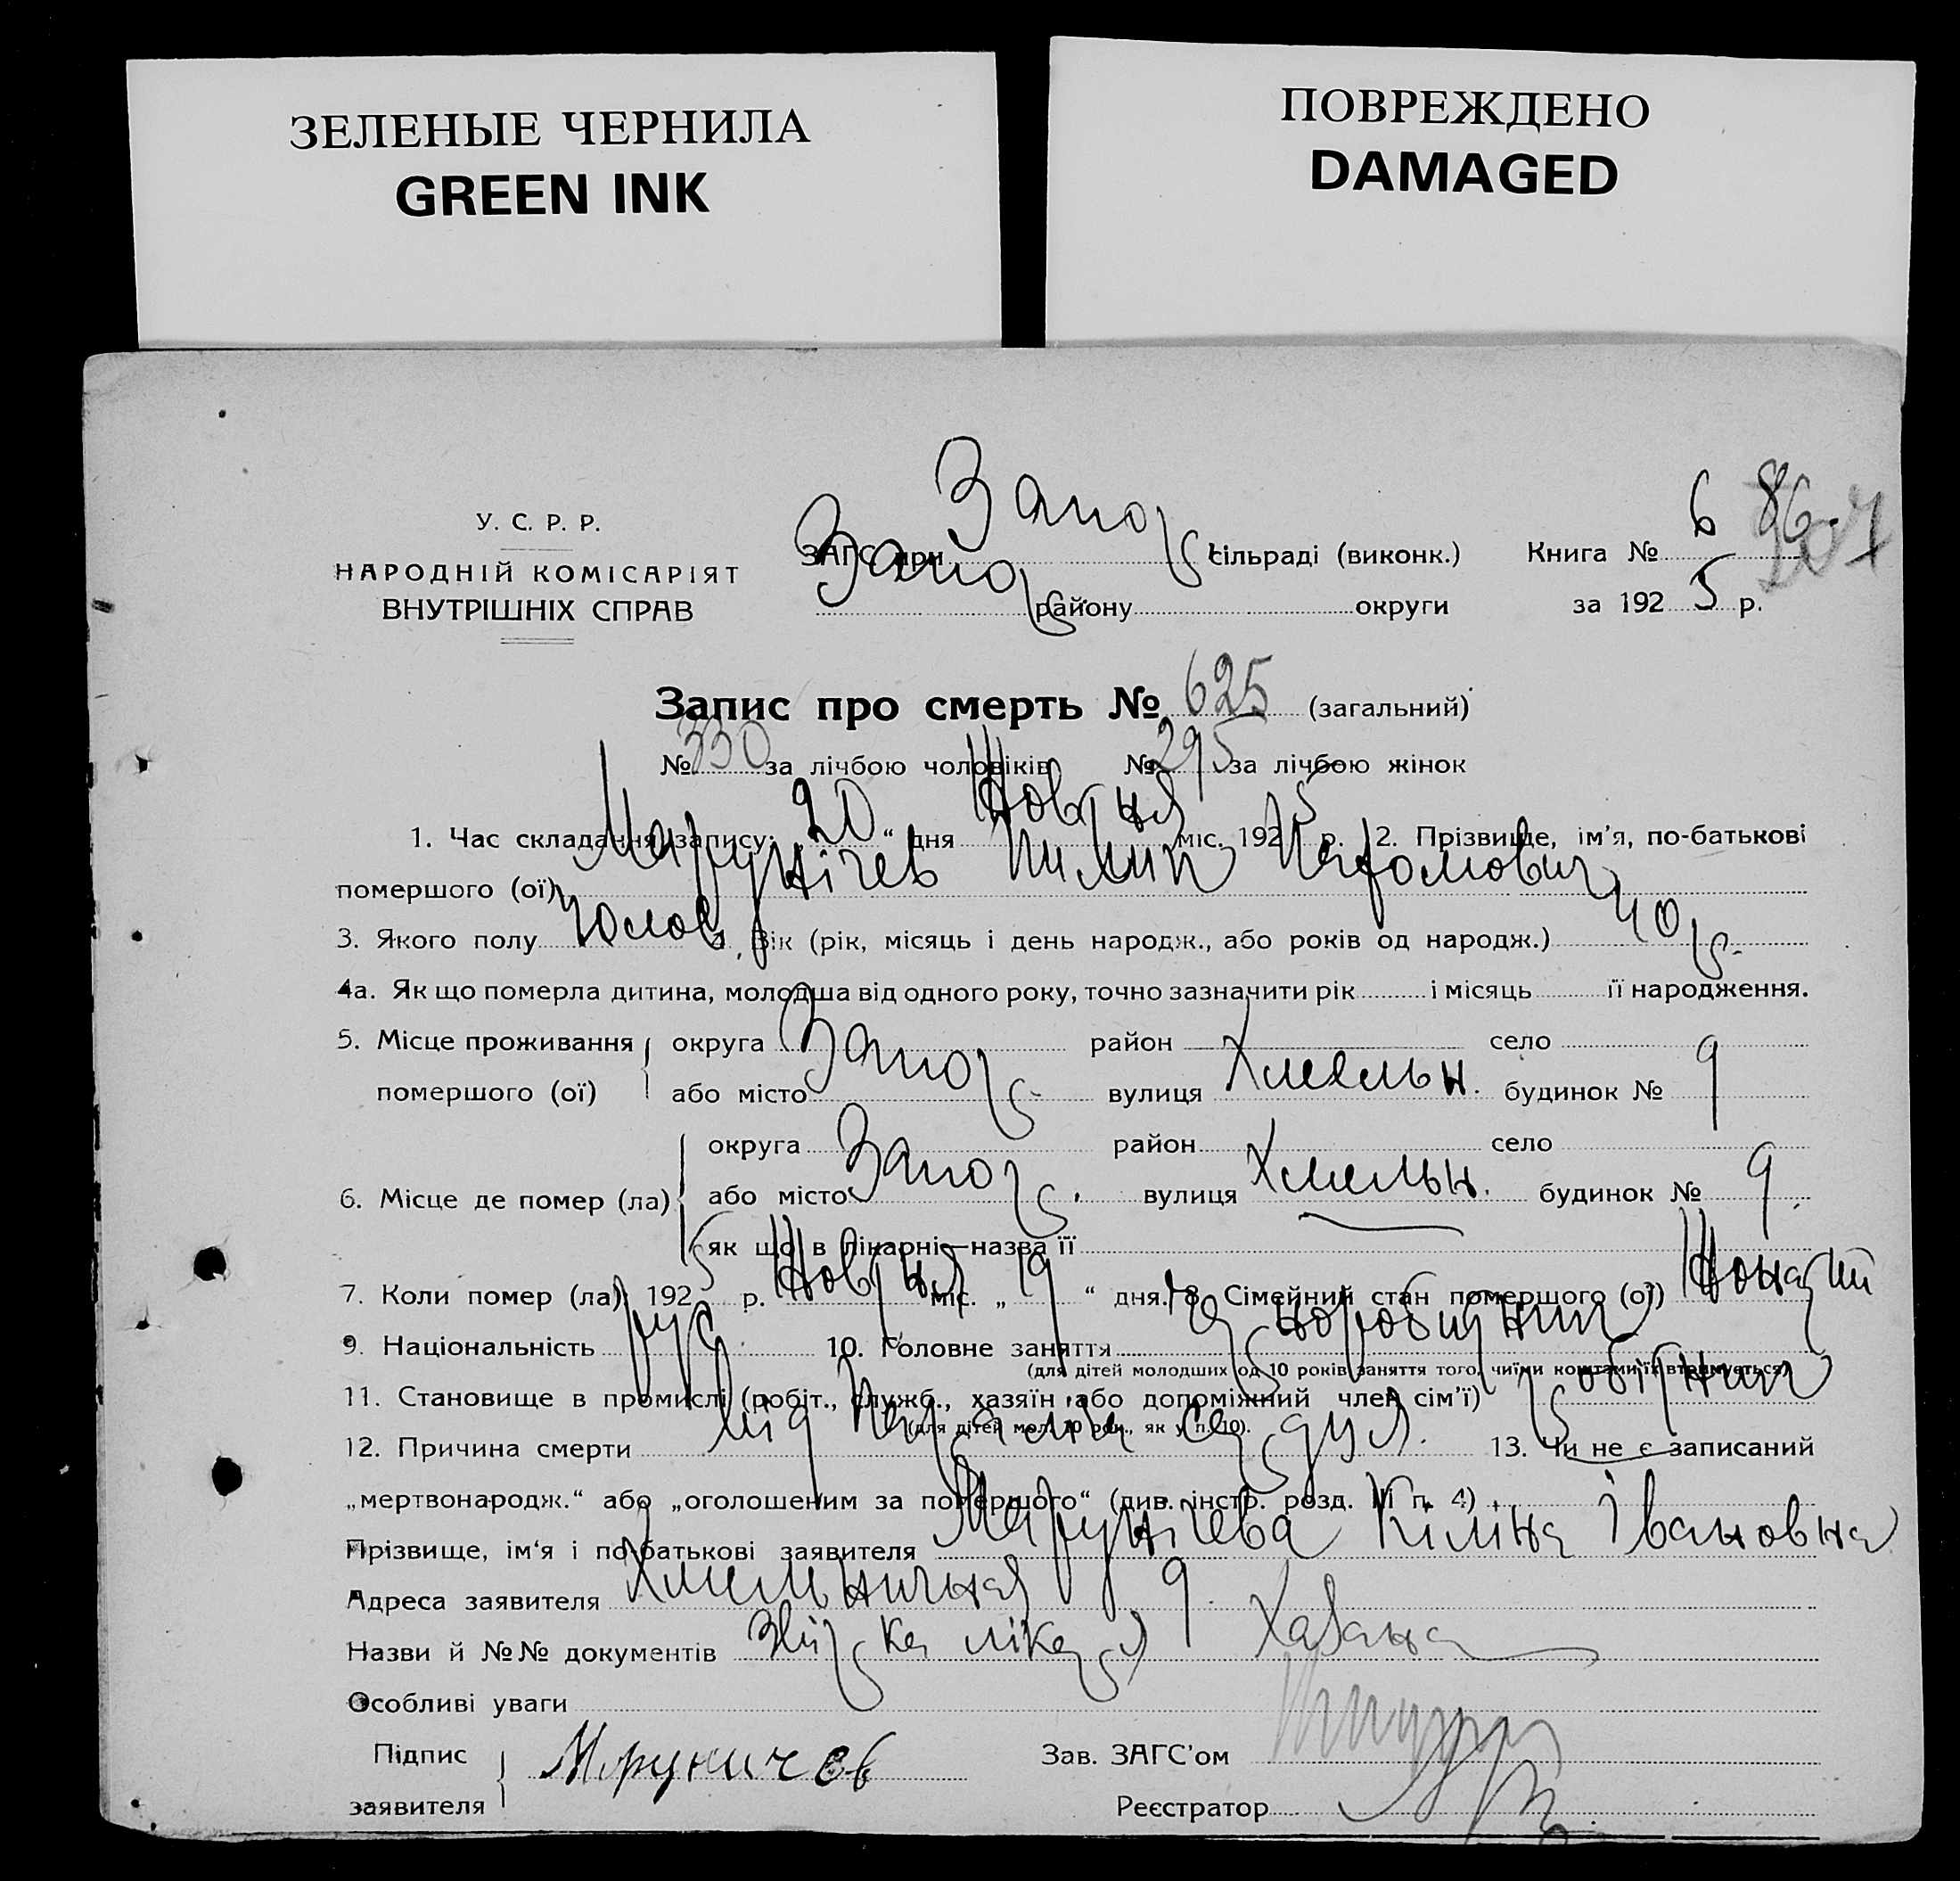 ЗЕЛЕНЫЕ ЧЕРНИЛА
GREEN INK
ПОВРЕЖДЕНО
DAMAGED
У. С. Р. Р.
НАРОДНІЙ КОМІСАРІЯТ
ВНУТРІШНІХ СПРАВ
ЗАГС при Запор. сільраді (виконк.)
Запор. району округи
Книга № 6
за 1925 р.
Запис про смерть № 625 (загальний)
№ 330 за лічбою чоловіків № 295 за лічбою жінок
1. Час складання запису: 20 " дня Жовтня міс. 1925 р. 2. Прізвище, ім'я, по-батькові
помершого (ої) Марунічев Пилип
3. Якого полу чолов 4. Вік (рік, місяць і день народж., або років од народж.) 40 р.
4а. Як що померла дитина, молодша від одного року, точно зазначити рік і місяць її народження.
5. Місце проживання округа район село
помершого (ої) або місто Запор. вулиця Хмельн. будинок № 9
округа район село
6. Місце де помер (ла) або місто Запор. вулиця Хмельн. будинок № 9
як що в лікарні—назва її
7. Коли помер (ла): 1925 р. Жовтня міс. „ 19 " дня. 8. Сімейний стан помершого (ої) Жонатий
9. Національність рус 10. Головне заняття
(для дітей молодших од 10 років заняття того, чиїми коштами їх втримується)
11. Становище в промислі (робіт., служб., хазяїн або допоміжний член сім'ї) робітник
(для дітей мол. 10 рок., як у п. 10).
12. Причина смерти від 13. Чи не є записаний
„мертвонародж." або „оголошеним за помершого" (див. інстр. розд. III п. 4)
Прізвище, ім'я і по-батькові заявителя Марунічева Кіліна Івановна
Адреса заявителя Хмельничная 9
Назви й №№ документів
Особливі уваги
Підпис
заявителя
Зав. ЗАГС'ом
Реєстратор